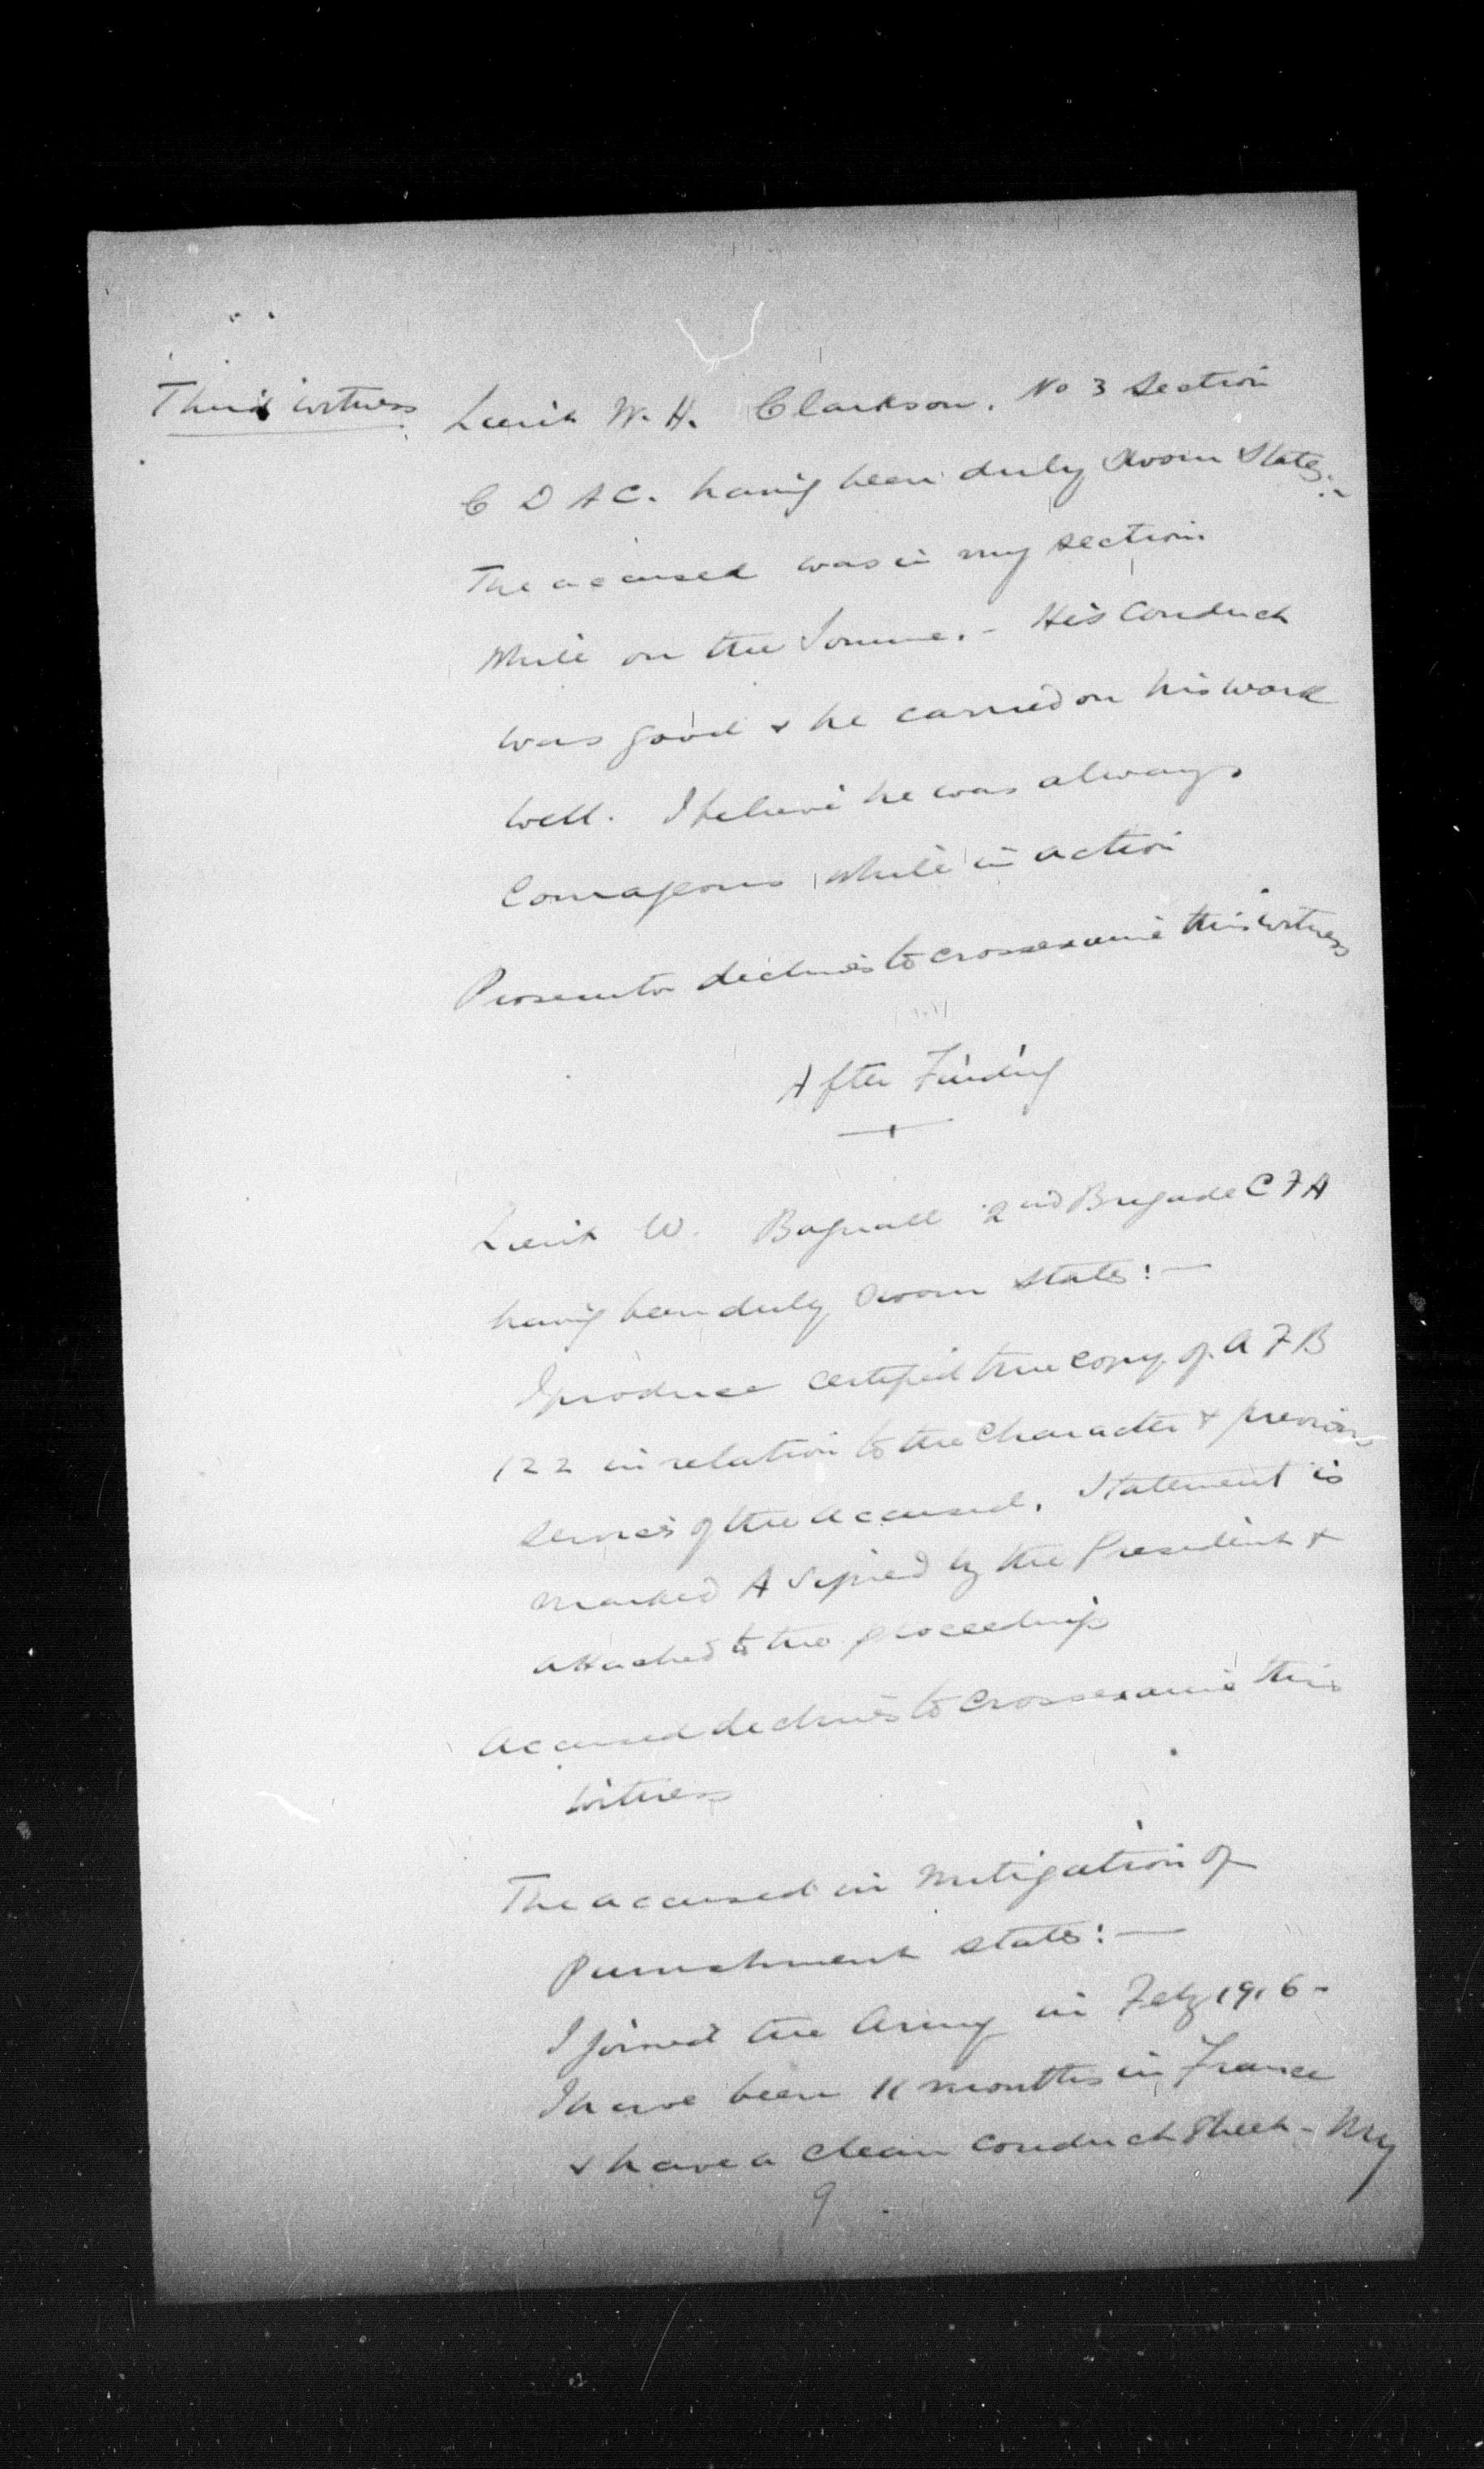 Third witness Lieut W. H. Clarkson. No 3 Section
C D A C. having been duly sworn states:-
The accused was in my section
while on the Somme. - His conduct
was good & he carried on his work
well. I believe he was always
courageous while in action
Prosecutor declines to crossexamine this witness
After Finding
Lieut W. Bagnall 2nd Brigade C F A
having been duly sworn states:—
I produce certified true copy of A F B
122 in relation to the character & previous
services of the accused. Statement is
marked A signed by the President &
attached to the proceedings
Accused declines to crossexamine this
witness
The accused in mitigation of
punishment states:—
I joined the Army in Feby 1916 -
I have been 11 months in France
& have a clean conduct sheet - My
9